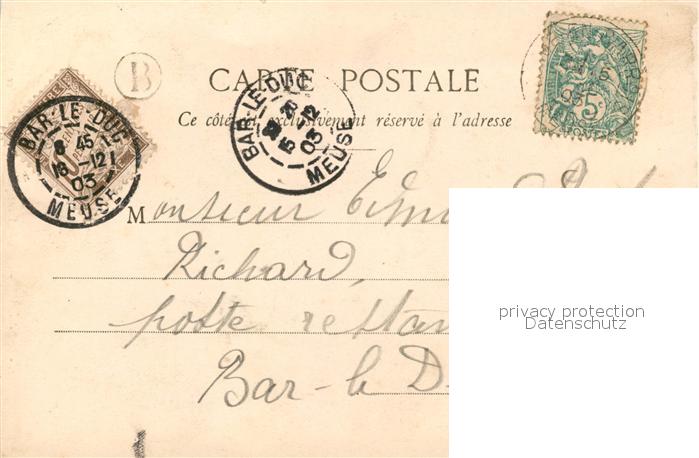 B
CARTE POSTALE
Ce côté est exclusivement réservé à l'adresse
BAR-LE-DUC
8 45
16 -12
03
MEUSE
BAR-LE-DUC
15 -12
03
MEUSE
5c
POSTES
Monsieur
Richard,
poste restan
Bar-le D
privacy protection
Datenschutz